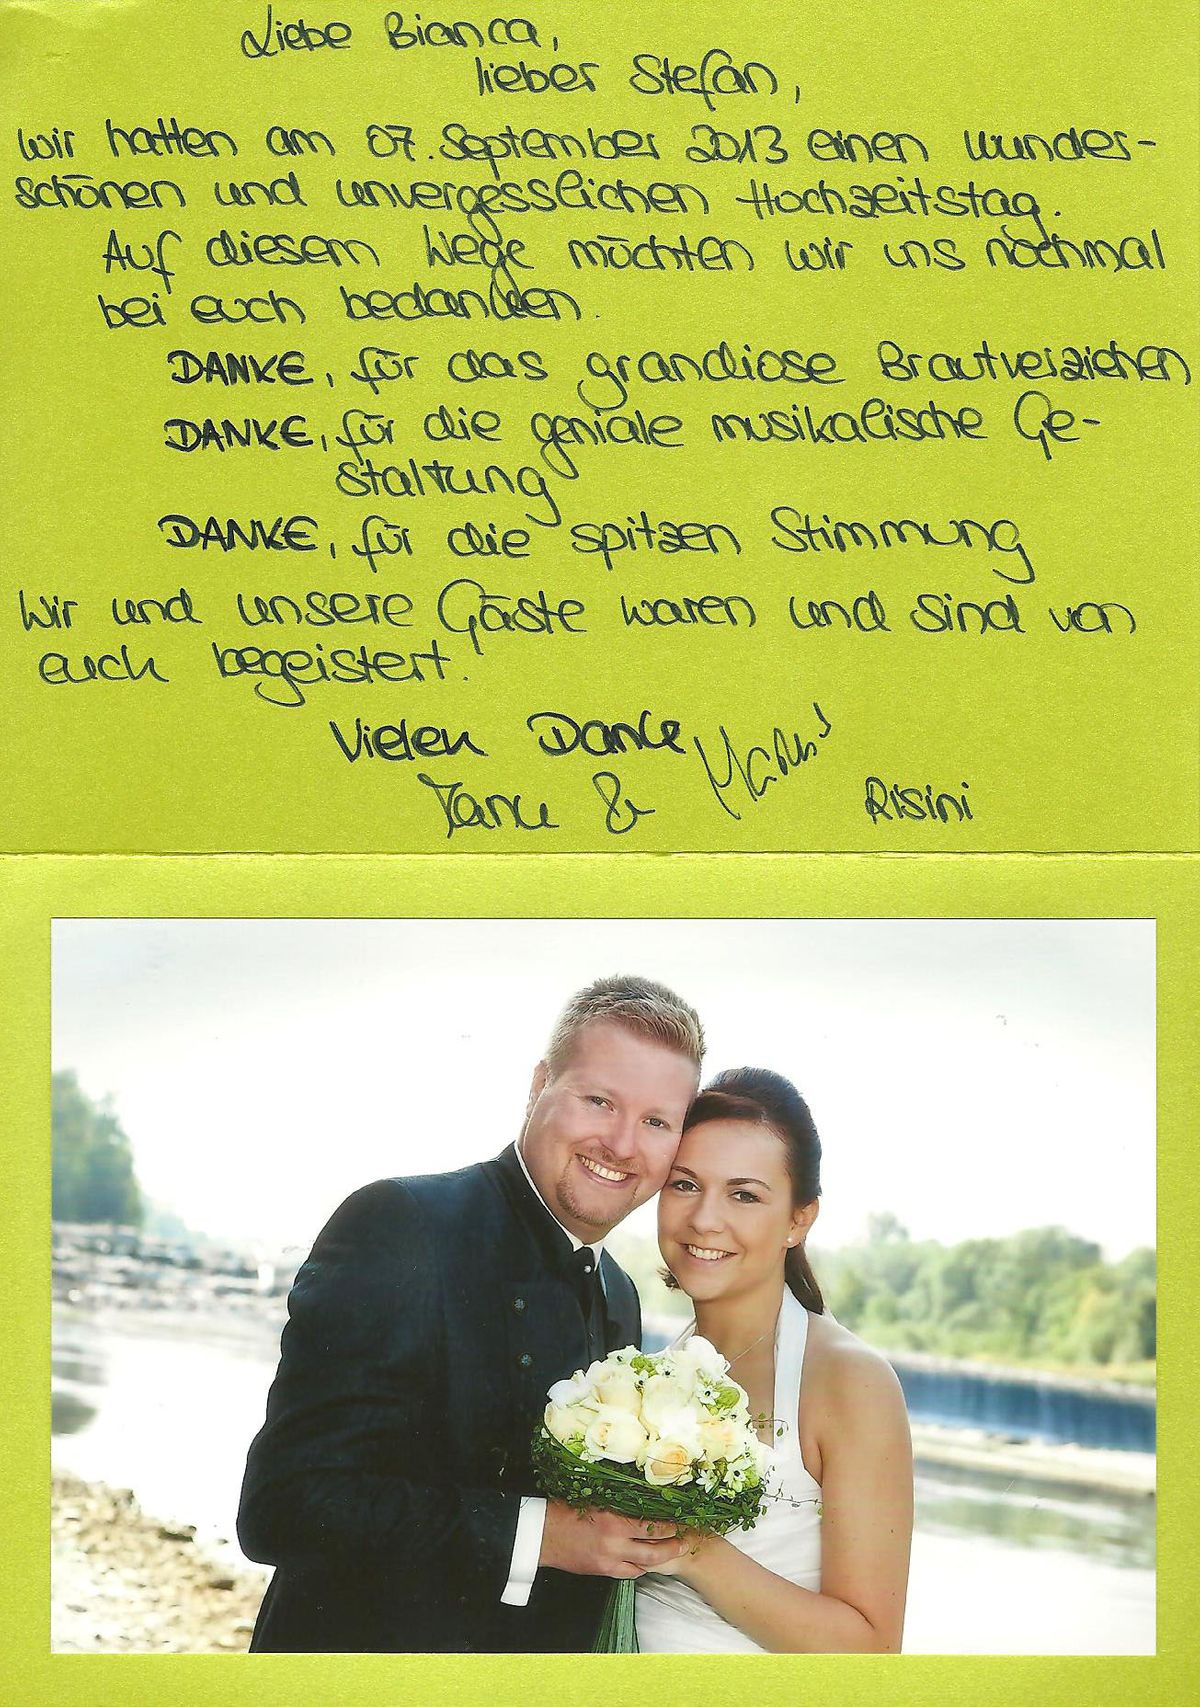 Liebe Bianca,
lieber Stefan,
wir hatten am 07. September 2013 einen wunder-
schönen und unvergesslichen Hochzeitstag.
Auf diesem Wege möchten wir uns nochmal
bei euch bedanken.
DANKE, für das grandiose Brautverziehen
DANKE, für die geniale musikalische Ge-
staltung
DANKE, für die spitzen Stimmung
Wir und unsere Gäste waren und sind von
euch begeistert.
Vielen Danke
& Markus Risini